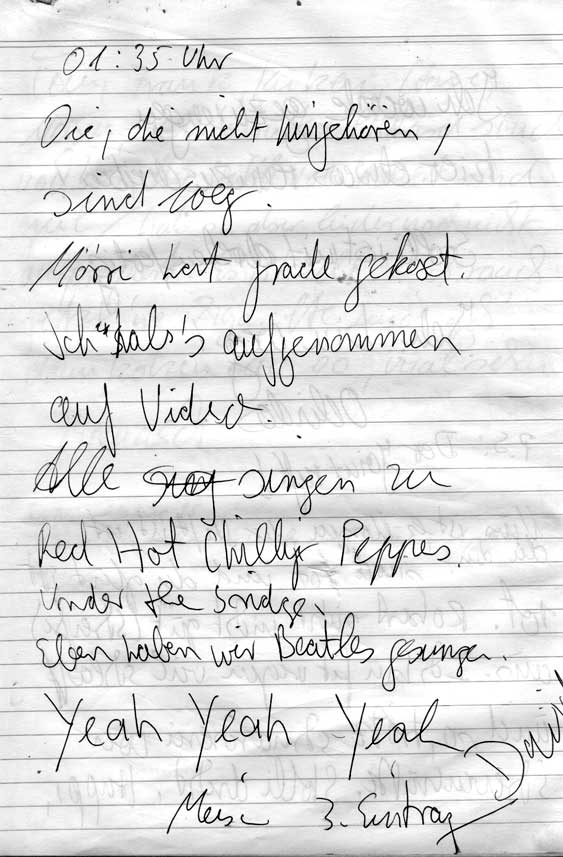 01:35 Uhr
Die, die nicht hingehören,
sind weg.
Mörri hat grade gekotzt.
Ich hab's aufgenommen
auf Video.
Alle singen zu
Red Hot Chilly Peppes.
Under the bridge.
Eben haben wir Beatles gesungen.
Yeah Yeah Yeah
3. Eintrag